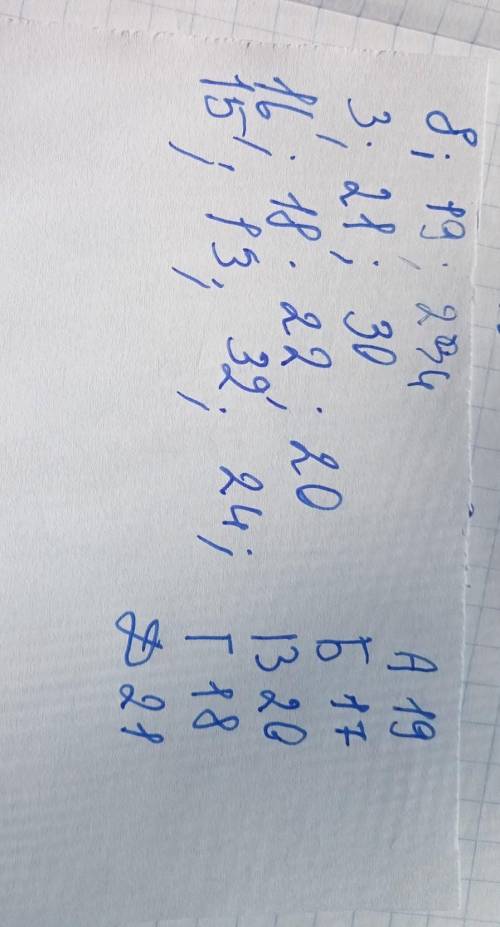 8; 19; 24
3; 21; 30
16; 18; 22; 20
15; 13; 32; 24;
А 19
Б 17
В 20
Г 18
Д 21